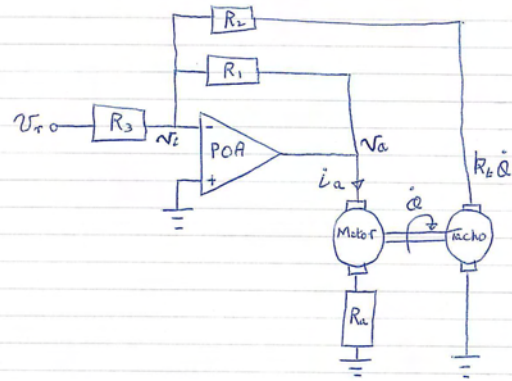 R₂
R₁
Vr
R₃
Vi
-
POA
+
Va
ia
kt Q̇
Q̇
Motor
Tacho
Ra